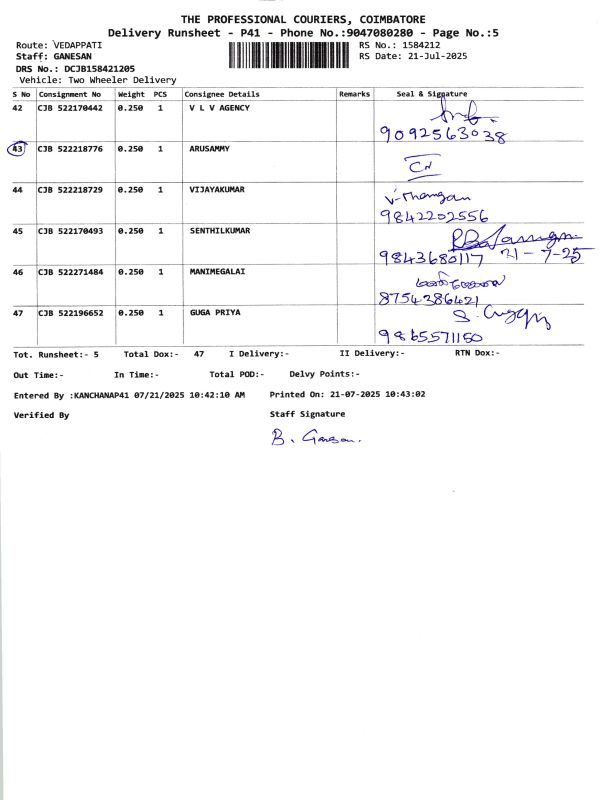 THE PROFESSIONAL COURIERS, COIMBATORE
Delivery Runsheet - P41 - Phone No.:9047080280 - Page No.:5
Route: VEDAPPATI RS No.: 1584212
Staff: GANESAN RS Date: 21-Jul-2025
DRS No.: DCJB158421205
Vehicle: Two Wheeler Delivery
S No Consignment No Weight PCS Consignee Details Remarks Seal & Signature
42 CJB 522170442 0.250 1 V L V AGENCY
9092563038
43 CJB 522218776 0.250 1 ARUSAMMY
44 CJB 522218729 0.250 1 VIJAYAKUMAR
9842202556
45 CJB 522170493 0.250 1 SENTHILKUMAR
9843680117 21-7-25
46 CJB 522271484 0.250 1 MANIMEGALAI
8754386421
47 CJB 522196652 0.250 1 GUGA PRIYA
9865571150
Tot. Runsheet:- 5 Total Dox:- 47 I Delivery:- II Delivery:- RTN Dox:-
Out Time:- In Time:- Total POD:- Delvy Points:-
Entered By :KANCHANAP41 07/21/2025 10:42:10 AM Printed On: 21-07-2025 10:43:02
Verified By Staff Signature
B. Ganesan.